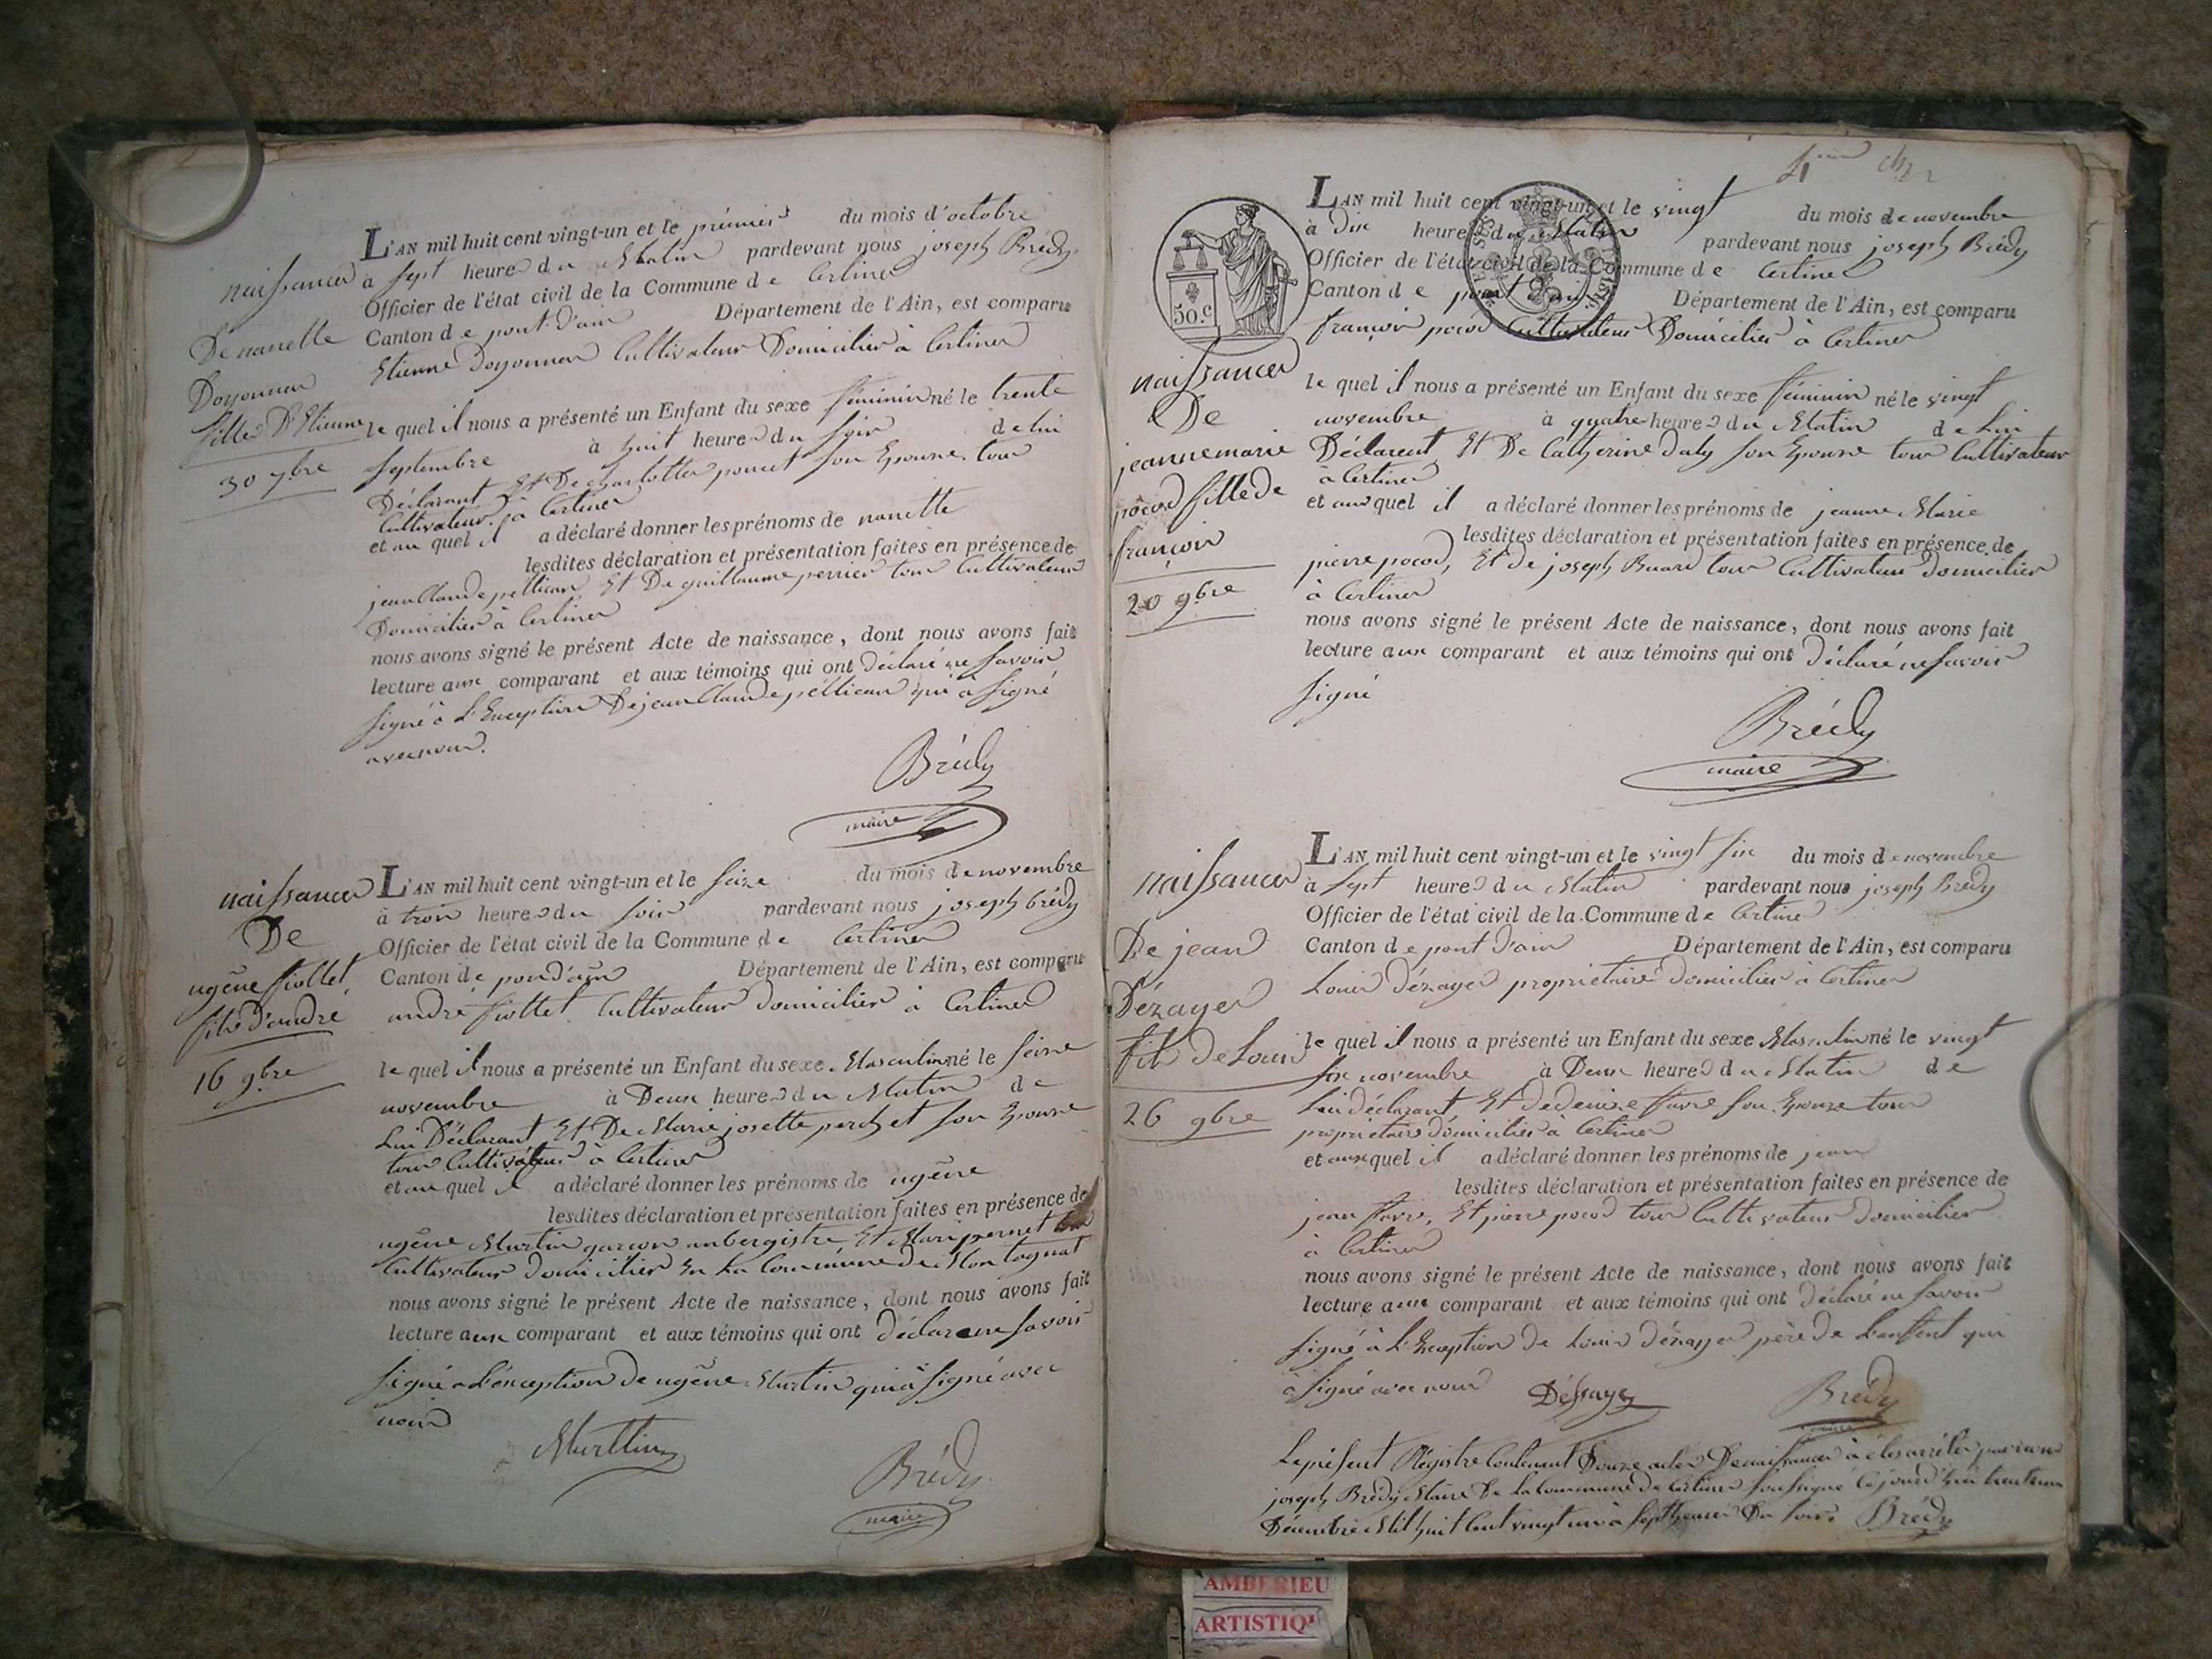 L'AN mil huit cent vingt-un et le premier du mois d'octobre
naissance à sept heures du Matin pardevant nous joseph Brédy
Officier de l'état civil de la Commune de Certines
De nanette Canton de pont d'ain Département de l'Ain, est comparu
Doyonnax Etienne Doyonnax Cultivateur Domicilier à Certines
fille D'Etienne le quel il nous a présenté un Enfant du sexe féminin né le trente
30 7bre septembre à huit heures du soir de lui
Déclarant Et De charlotte poncet son Epouse tous
Cultivateurs à Certines
et au quel il a déclaré donner les prénoms de nanette
lesdites déclaration et présentation faites en présence de
jean Claude pellican Et De guillaume perrier tous Cultivateurs
Domicilier à Certines
nous avons signé le présent Acte de naissance, dont nous avons fait
lecture aux comparant et aux témoins qui ont Déclaré ne savoir
signé à L'Exception De jean Claude pellican qui à signé
avec nous.
Brédy
maire
naissance L'AN mil huit cent vingt-un et le seize du mois de novembre
De à trois heures du soir pardevant nous joseph brédy
Officier de l'état civil de la Commune de Certines
ugêne fiollet Canton de pond'ain Département de l'Ain, est comparu
fils d'andré andré fiollet Cultivateur domicilier à Certines
16 9bre le quel il nous a présenté un Enfant du sexe Masculin né le seize
novembre à Deux heures du Matin de
Lui Déclarant Et De Marie josette perchet son Epouse
tous Cultivateurs à Certines
et au quel il a déclaré donner les prénoms de ugêne
lesdites déclaration et présentation faites en présence de
ugêne Murtin garcon aubergistre Et Mari pernet
Cultivateur domicilier En La Commune de Montagnat
nous avons signé le présent Acte de naissance, dont nous avons fait
lecture aux comparant et aux témoins qui ont déclare ne savoir
signé a L'exception De ugêne Murtin qui à signé avec
nous
Murttin
Brédy
maire
L'AN mil huit cent vingt-un et le vingt du mois de novembre
à Dix heures du Matin pardevant nous joseph Brédy
Officier de l'état civil de la Commune de Certines
50.c Canton de pont d'ain Département de l'Ain, est comparu
françois pocod Cultivateur Domicilier à Certines
naissance le quel il nous a présenté un Enfant du sexe féminin né le vingt
De novembre à quatre heures du Matin de Lui
jeanne marie Déclarent Et De Catherine Daty son Epouse tous Cultivateur
à Certines
pocod fille de et aux quel il a déclaré donner les prénoms de jeanne Marie
françois lesdites déclaration et présentation faites en présence de
pierre pocod, Et de joseph Buard tous Cultivateur domicilier
20 9bre à Certines
nous avons signé le présent Acte de naissance, dont nous avons fait
lecture aux comparant et aux témoins qui ont déclaré ne savoir
signé
Brédy
maire
L'AN mil huit cent vingt-un et le vingt six du mois de novembre
naissance à sept heures du Matin pardevant nous joseph Brédy
Officier de l'état civil de la Commune de Certines
De jean Canton de pont d'ain Département de l'Ain, est comparu
Dézayes Louis dézayes proprietaire domicilier a Certines
fils de Louis le quel il nous a présenté un Enfant du sexe Masculin né le vingt
six novembre à Deux heures du Matin de
26 9bre Lui déclarant Et de denise favre son Epouze tous
proprietaire domicilier à Certines
et aux quel il a déclaré donner les prénoms de jean
lesdites déclaration et présentation faites en présence de
jean favre, Et pierre pocod tous Cultivateur domicilier
à Certines
nous avons signé le présent Acte de naissance, dont nous avons fait
lecture aux comparant et aux témoins qui ont déclaré ne savoir
signé à L'Exception de Louis dézayes père de L'enfent qui
à signé avec nous Déssayes Brédy
maire
Le présent Régistre Contenant Douze actes De naissances à été arrêter par nous
joseph Brédy Maire De La Commune de Certines soussigné Cejourd'hui trente un
Décembre Mil huit Cent vingt un à sept heures Du soir. Brédy
AMBERIEU
ARTISTIQ